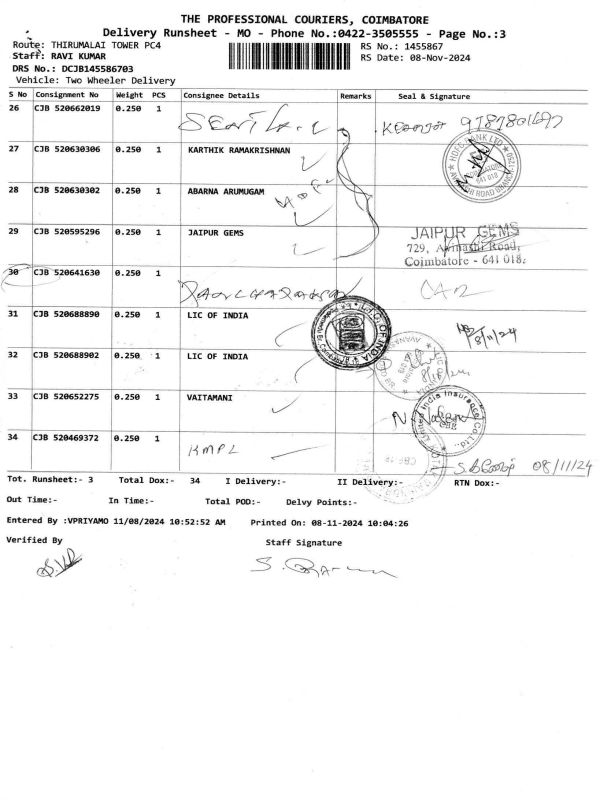 THE PROFESSIONAL COURIERS, COIMBATORE
Delivery Runsheet - MO - Phone No.:0422-3505555 - Page No.:3
Route: THIRUMALAI TOWER PC4
Staff: RAVI KUMAR
RS No.: 1455867
RS Date: 08-Nov-2024
DRS No.: DCJB145586703
Vehicle: Two Wheeler Delivery
S No Consignment No Weight PCS Consignee Details Remarks Seal & Signature
26 CJB 520662019 0.250 1
27 CJB 520630306 0.250 1 KARTHIK RAMAKRISHNAN
HDFC BANK LTD
641 018
28 CJB 520630302 0.250 1 ABARNA ARUMUGAM
29 CJB 520595296 0.250 1 JAIPUR GEMS
JAIPUR GEMS
729, Avinashi Road,
Coimbatore - 641 018.
30 CJB 520641630 0.250 1
31 CJB 520688890 0.250 1 LIC OF INDIA
L.I.C. OF INDIA
8/11/24
32 CJB 520688902 0.250 1 LIC OF INDIA
33 CJB 520652275 0.250 1 VAITAMANI
United India Insurance Co. Ltd.
CBE
34 CJB 520469372 0.250 1 KMPL
08/11/24
Tot. Runsheet:- 3 Total Dox:- 34 I Delivery:- II Delivery:- RTN Dox:-
Out Time:- In Time:- Total POD:- Delvy Points:-
Entered By :VPRIYAMO 11/08/2024 10:52:52 AM Printed On: 08-11-2024 10:04:26
Verified By Staff Signature